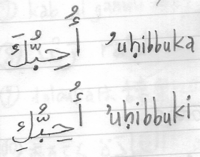 أُحِبُّكَ 'uḥibbuka
أُحِبُّكِ 'uḥibbuki